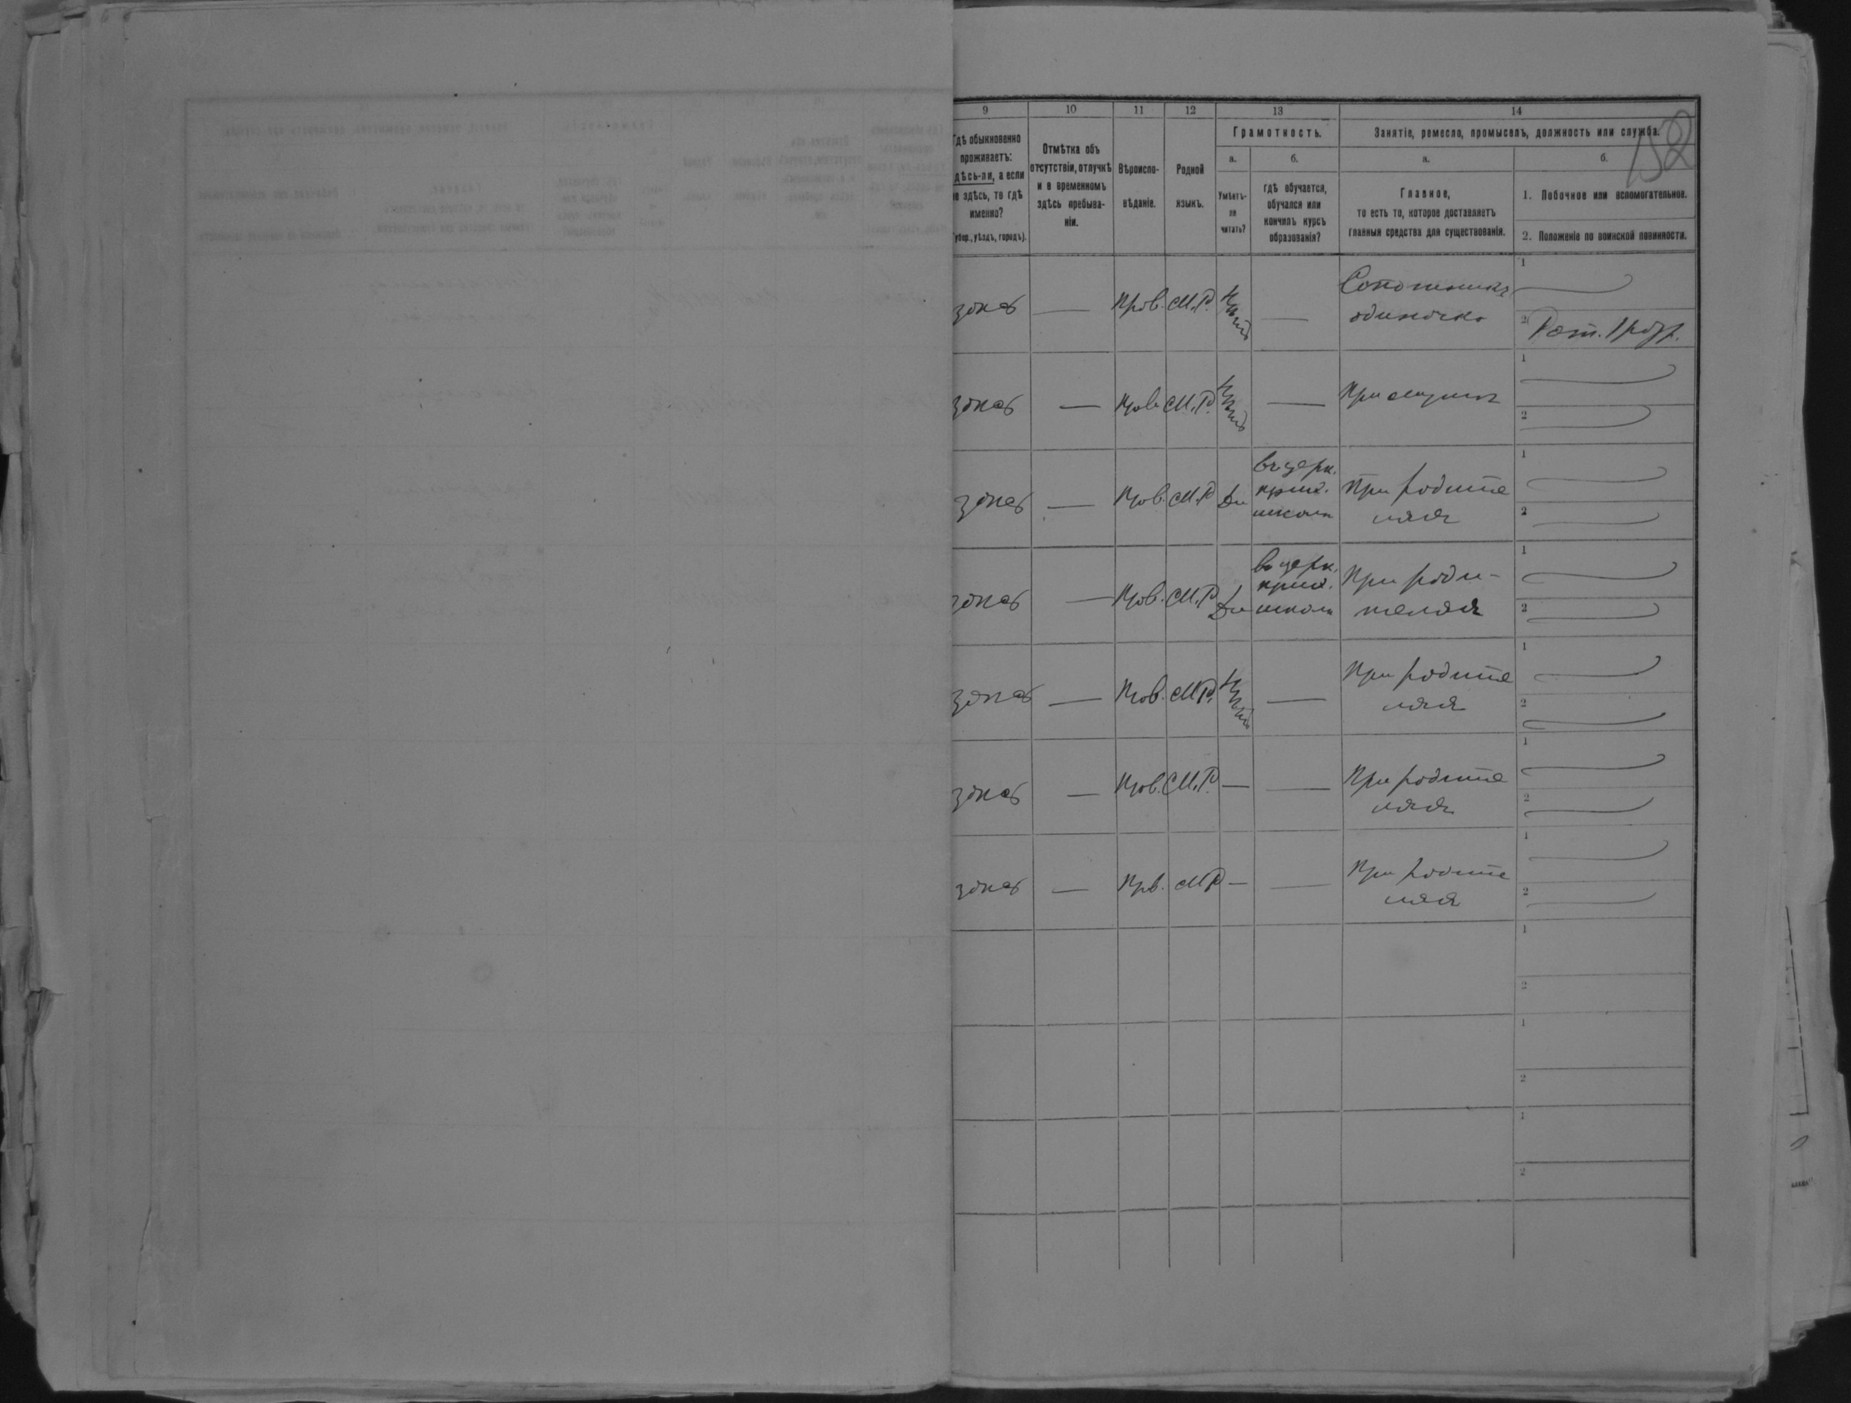 152
9 10 11 12 13 14
Гдѣ обыкновенно проживаетъ: здѣсь-ли, а если не здѣсь, то гдѣ именно? (губер., уѣздъ, городъ).
Отмѣтка объ отсутствіи, отлучкѣ и о временномъ здѣсь пребываніи.
Вѣроисповѣданіе.
Родной языкъ.
Грамотность.
а.
Умѣетъ-ли читать?
б.
гдѣ обучается, обучался или кончилъ курсъ образованія?
Занятіе, ремесло, промыселъ, должность или служба.
а.
Главное,
то есть то, которое доставляетъ
главныя средства для существованія.
б.
1. Побочное или вспомогательное.
2. Положеніе по воинской повинности.
здѣсь — Прав. М.Р. Нѣтъ — Сапожникъ одиночка 1 — 2 Рат. 1 разр.
здѣсь — Прав. М.Р. Нѣтъ — При мужѣ 1 — 2 —
здѣсь — Прав. М.Р. Да въ церк. прих. школѣ При родителяхъ 1 — 2 —
здѣсь — Прав. М.Р. Да въ церк. прих. школѣ При родителяхъ 1 — 2 —
здѣсь — Прав. М.Р. Нѣтъ — При родителяхъ 1 — 2 —
здѣсь — Прав. М.Р. — — При родителяхъ 1 — 2 —
здѣсь — Прв. М.Р. — — При родителяхъ 1 — 2 —
1
2
1
2
1
2